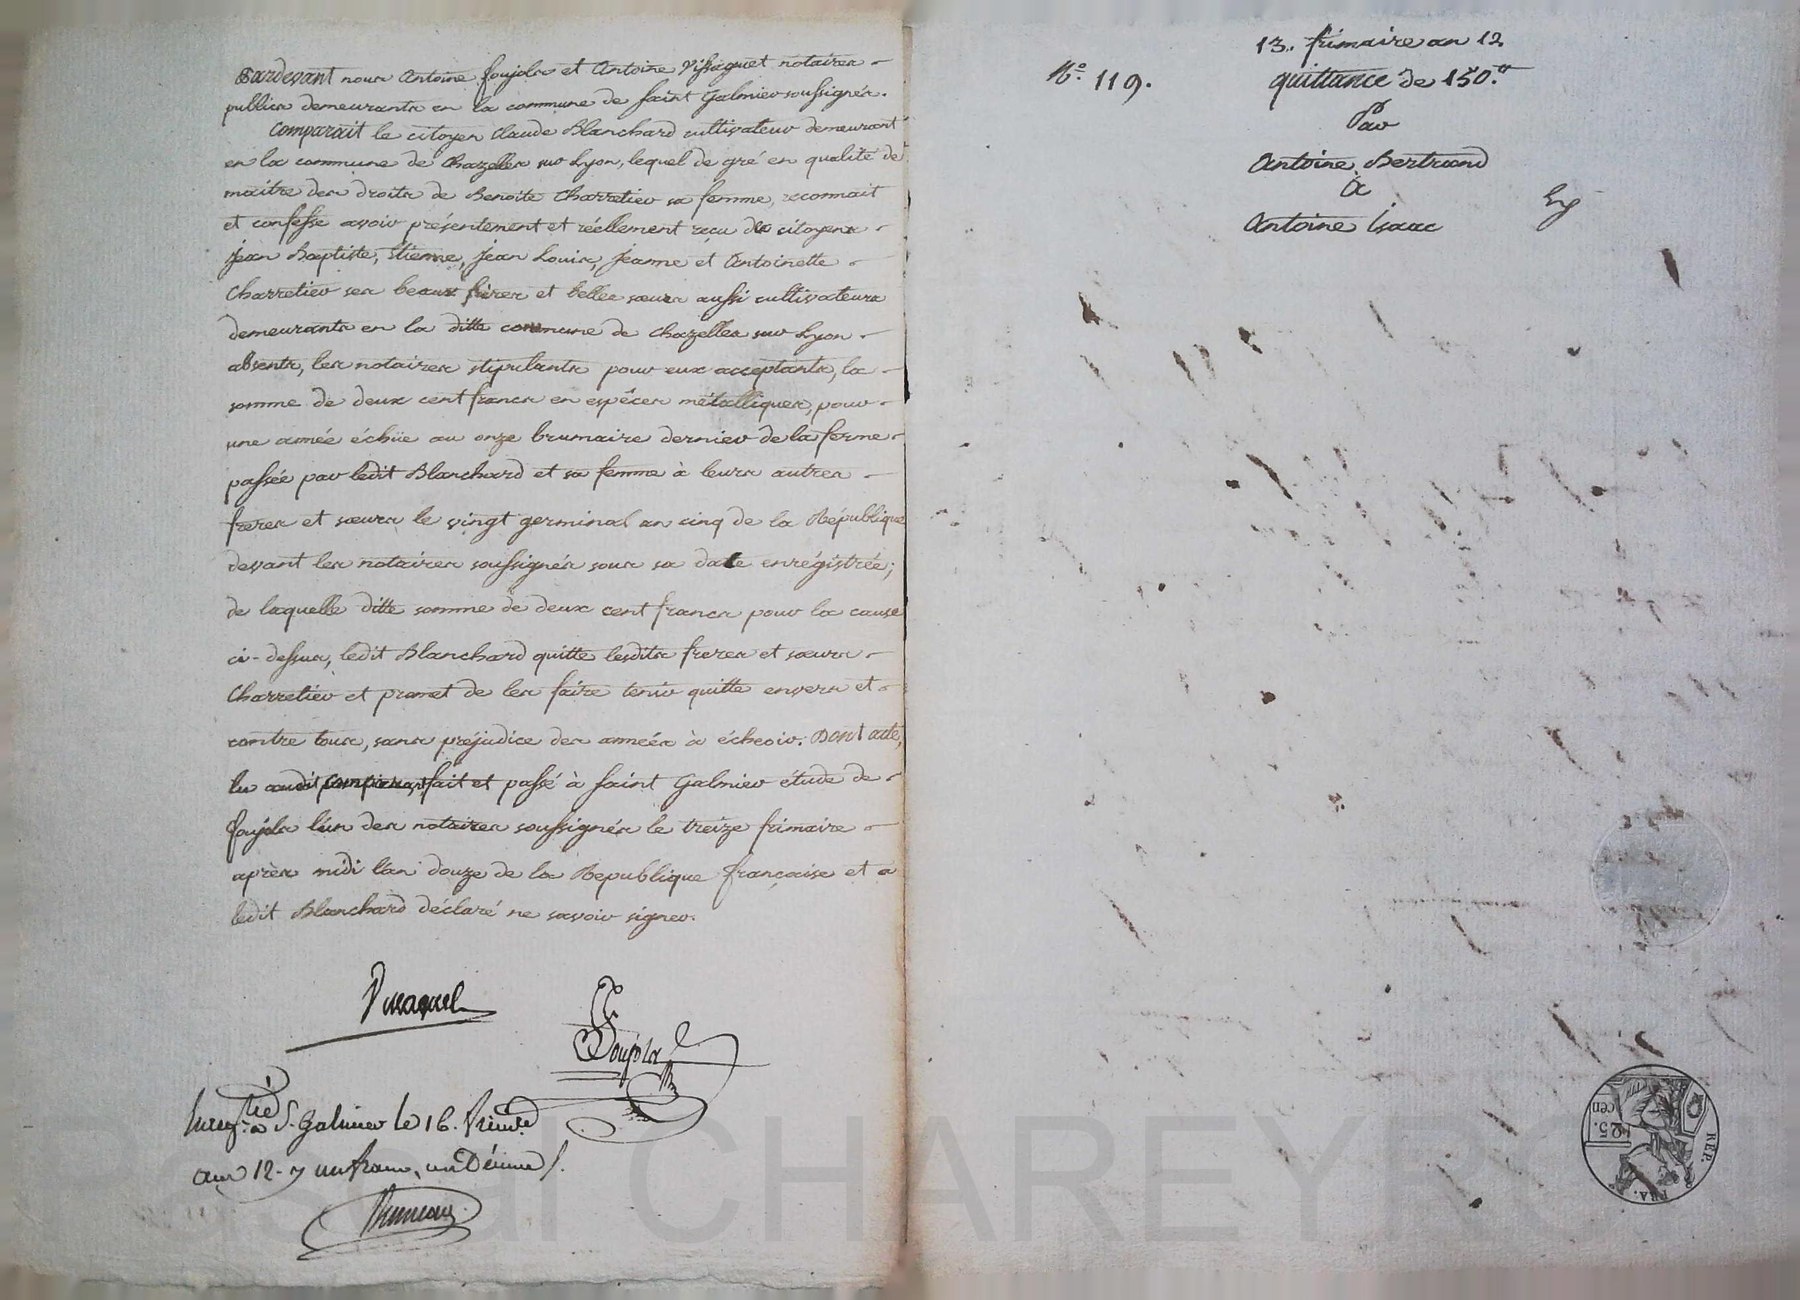 Pardevant nous Antoine foujols et Antoine Vissaguet notaires
publics demeurants en la commune de saint Galmier soussignés.
Comparait le citoyen Claude Blanchard cultivateur demeurant
en la commune de Chazelles sur Lyon, lequel de gré en qualité de
maitre des droits de Benoite Charretier sa femme, reconnait
et confesse avoir présentement et réellement reçu des citoyens
jean Baptiste, Etienne, jean Louis, jeanne et Antoinette
Charretier ses beaux frères et belles sœurs aussi cultivateurs
demeurants en la ditte commune de Chazelles sur Lyon
absents, les notaires stipulants pour eux acceptants, la
somme de deux cent francs en espèces métalliques, pour
une année échüe au onze brumaire dernier de la ferme
passée par ledit Blanchard et sa femme à leurs autres
freres et sœurs le vingt germinal an cinq de la République
devant les notaires soussignés sous sa date enrégistrée;
de laquelle ditte somme de deux cent francs pour la cause
ci-dessus, ledit Blanchard quitte lesdits freres et sœurs
Charretier et promet de les faire tenir quitte envers et
contre tous, sans préjudice des années à écheoir. Dont acte,
lu audit comparant, fait et passé à saint Galmier étude de
foujols l'un des notaires soussignés le treize frimaire
après midi l'an douze de la République française et a
ledit Blanchard déclaré ne savoir signer.
Vissaguet
Foujols
Enregtré à St. Galmier le 16. frimre
an 12. un franc, un Décime
13. frimaire an 12
No. 119.
quittance de 150.tt
Par
Antoine Bertrand
à
Antoine Isaac
REP. FRA.
25. cen
Pascal CHAREYRON